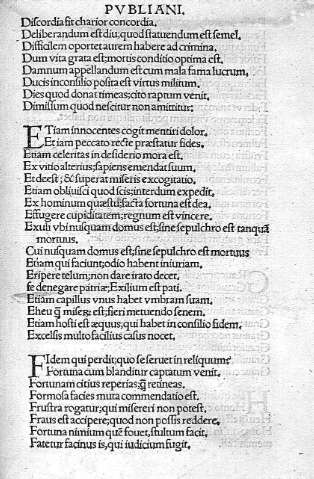 PVBLIANI.
Discordia fit charior concordia.
Deliberandum est diu; quod statuendum est semel.
Difficilem oportet aurem habere ad crimina.
Dum vita grata est; mortis conditio optima est.
Damnum appellandum est cum mala fama lucrum.
Ducis in consilio posita est virtus militum.
Dies quod donat timeas; cito raptum venit.
Dimissum quod nescitur non amittitur:
ETiam innocentes cogit mentiri dolor.
Etiam peccato recte præstatur fides.
Etiam celeritas in desiderio mora est.
Ex vitio alterius; sapiens emendat suum.
Et deest; & superat miseris excogitatio.
Etiam oblivisci quod scis; interdum expedit.
Ex hominum quæstu; facta fortuna est dea.
Effugere cupiditatem; regnum est vincere.
Exuli vbi nusquam domus est; sine sepulchro est tanquā
mortuus.
Cui nusquam domus est; sine sepulchro est mortuus
Etiam qui faciunt; odio habent iniuriam.
Eripere telum; non dare irato decet.
se denegare patriæ; Exilium est pati.
Etiam capillus vnus habet vmbram suam.
Eheu q̄ miser est; fieri metuendo senem.
Etiam hosti est æquus; qui habet in consilio fidem.
Excelsis multo facilius casus nocet.
FIdem qui perdit; quo se seruet in reliquum?
Fortuna cum blanditur captatum venit.
Fortunam citius reperias; q̄ retineas.
Formosa facies muta commendatio est.
Frustra rogatur; qui misereri non potest.
Fraus est accipere; quod non possis reddere.
Fortuna nimium quē fouet, stultum facit.
Fatetur facinus is, qui iudicium fugit.